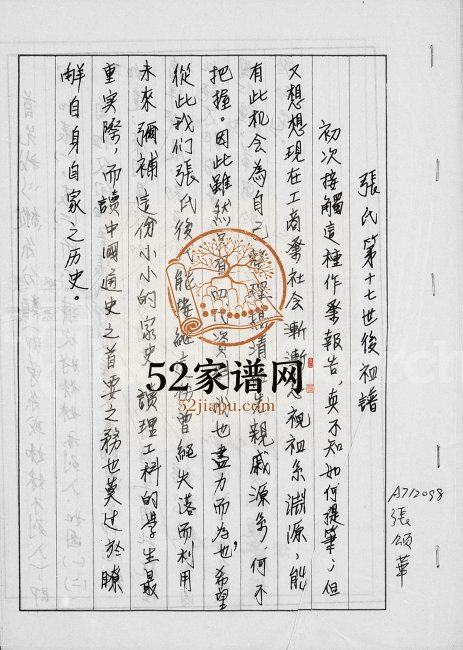 張氏第十七世後祖譜
初次接觸這種作業報告，真不知如何提筆；但
又想想現在工商業社會漸漸忽視祖系淵源，能
有此机会為自己整理清親戚源系，何不
把握。因此雖然有四代資也盡力而為也，希望
從此我们張氏後代能接繼曾絕失落而利用
未來彌補這份小小的家史。讀理工科的學生最
重实際，而讀中國通史之首要之務也莫过於瞭
解自身自家之历史。
A712098
張頌華
52家谱网
52jiapu.com